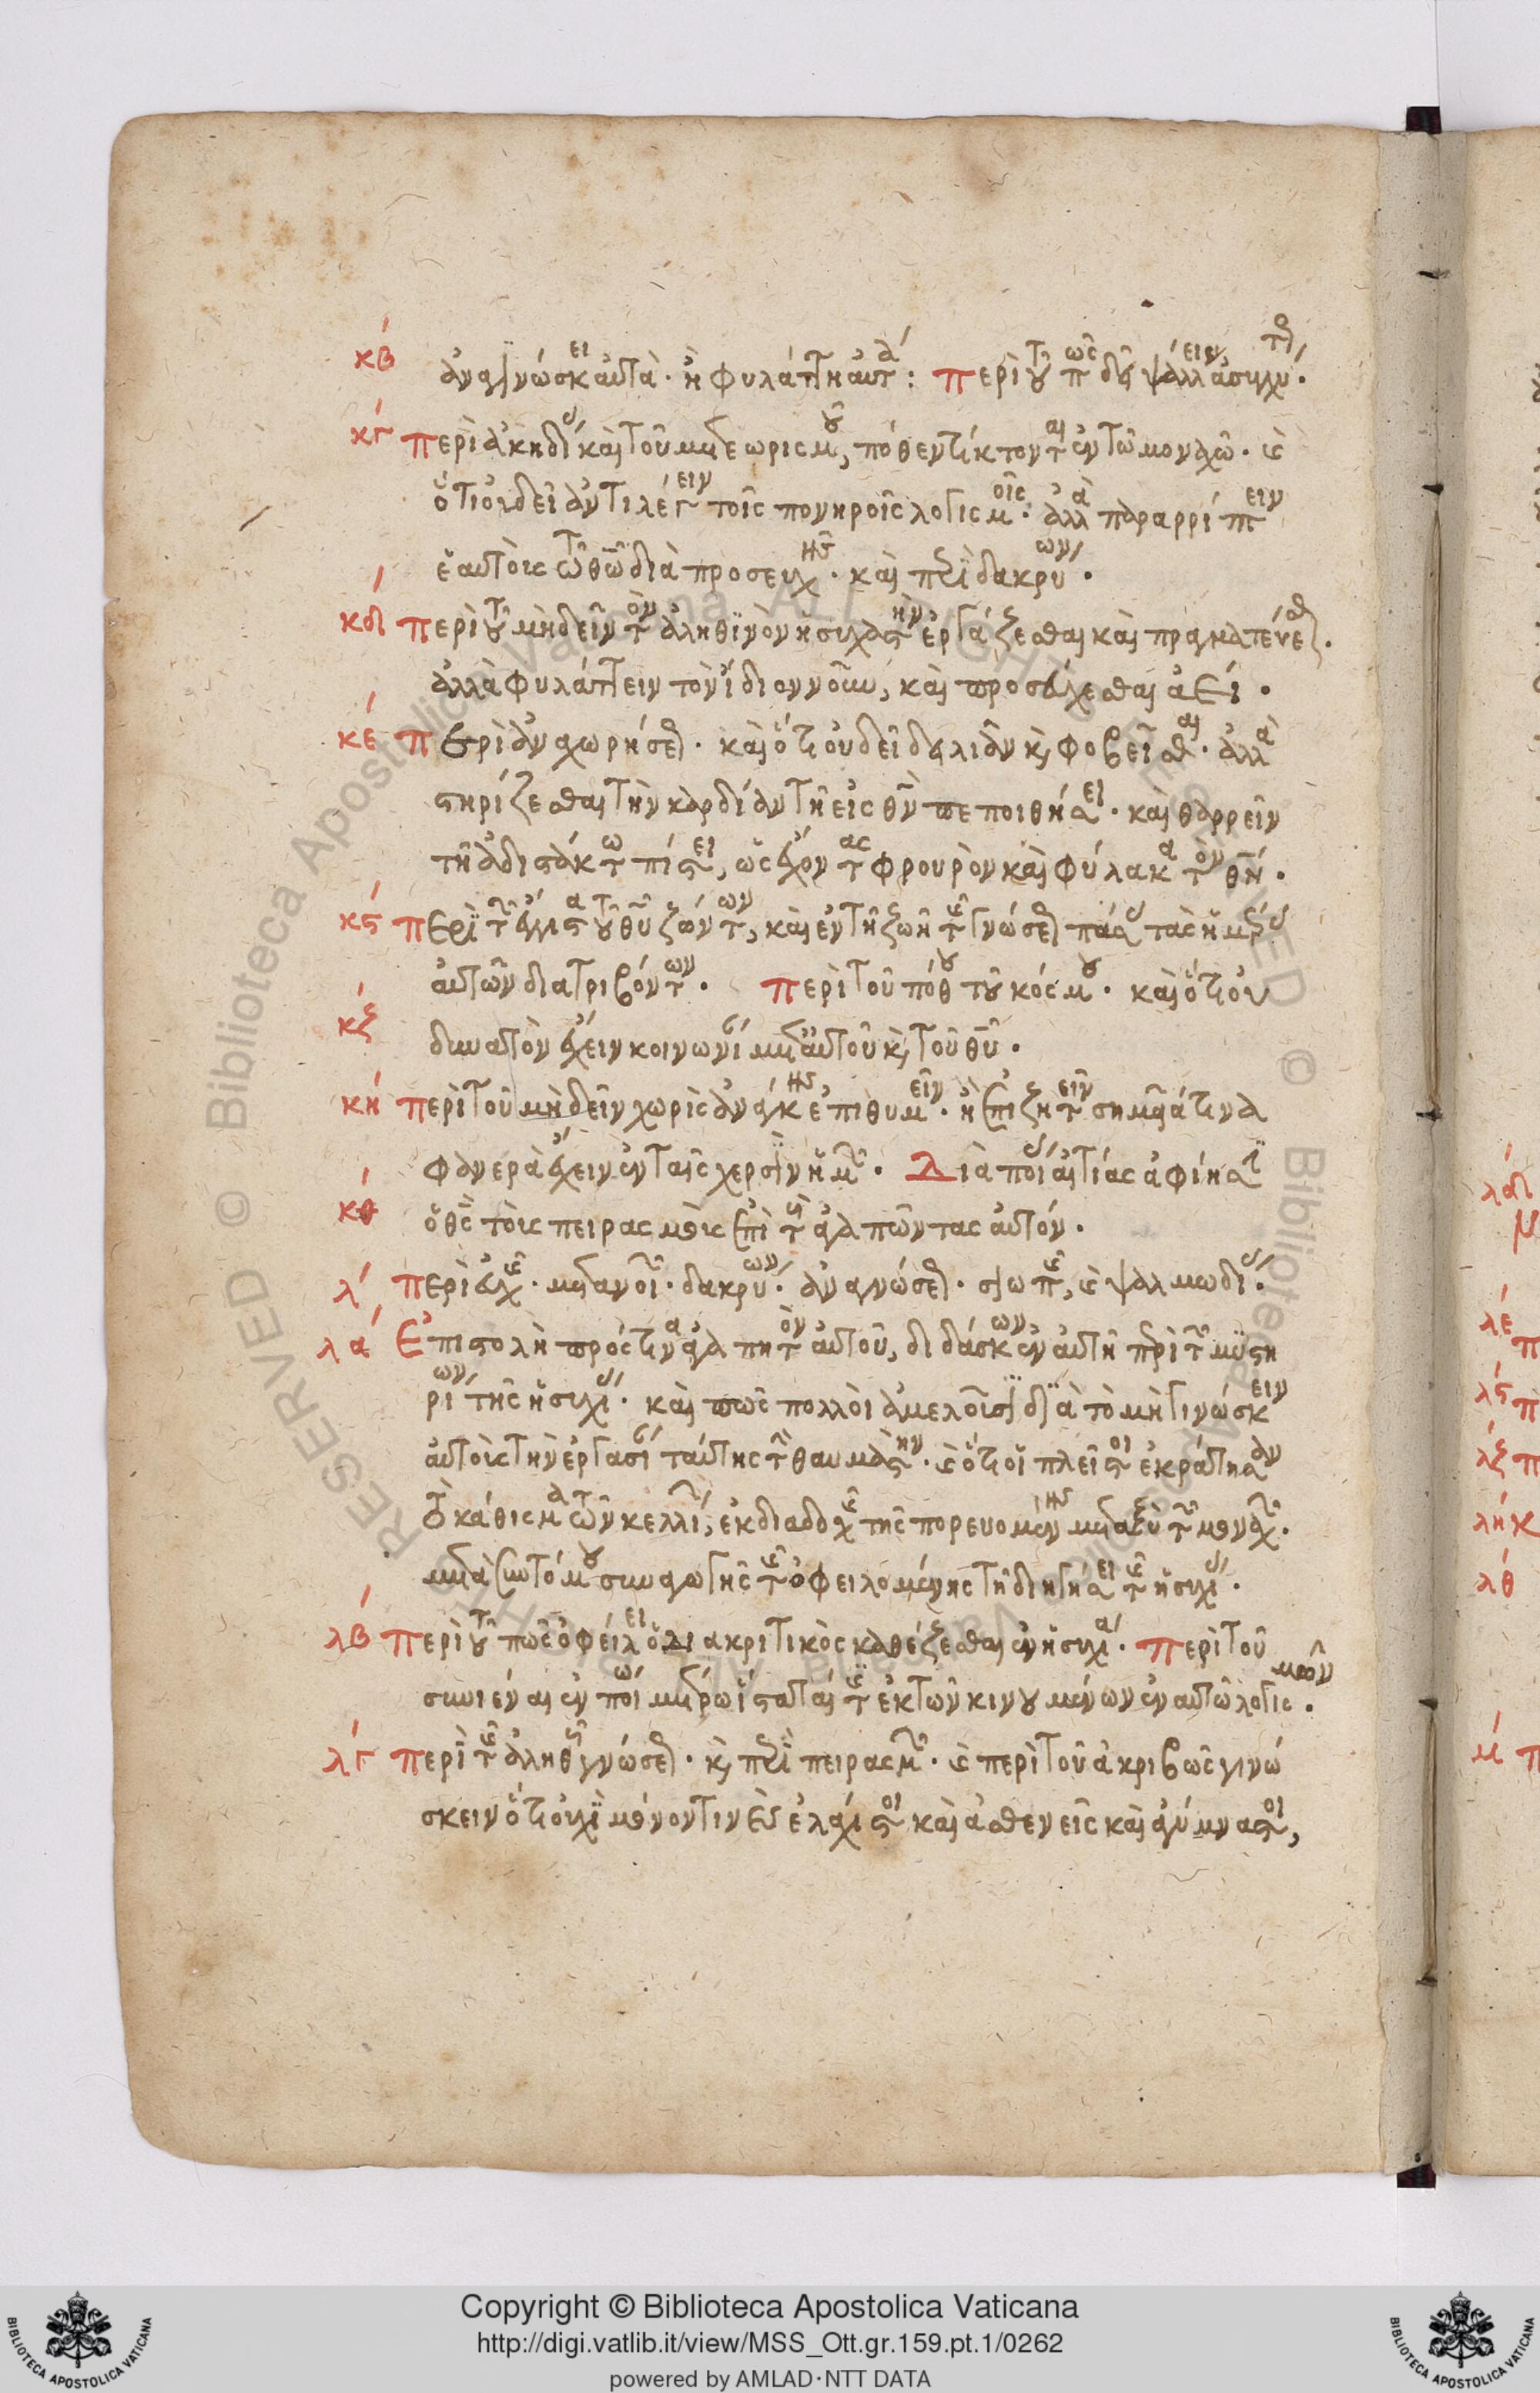 κβ ἀναγινώσκει αὐτὰ · ἢ φυλάττη αὐτά : περὶ τοῦ πῶς δεῖ ψάλλειν ἀσυγχύτως ·
κγ περὶ ἀκηδίας καὶ τοῦ μετεωρισμοῦ, πόθεν τίκτονται ἐν τῶ μοναχῶ · καὶ
ὅτι οὐ δεῖ ἀντιλέγειν τοῖς πονηροῖς λογισμοῖς · ἀλλὰ παραρρίπτειν
ἑαυτοὺς τῶ θῶ διὰ προσευχῆς · καὶ περὶ δακρύων ·
κδ περὶ τοῦ μὴ δεῖν τὸν ἀληθινὸν ἡσυχαστὴν ἐργάζεσθαι καὶ πραγματεύεσθαι ·
ἀλλὰ φυλάττειν τὸν ἴδιον νοῦν, καὶ προσεύχεσθαι ἀεί ·
κε περὶ ἀναχωρήσεως · καὶ ὅτι οὐ δεῖ δειλιᾶν καὶ φοβεῖσθαι · ἀλλὰ
στηρίζεσθαι τὴν καρδίαν τῆ εἰς θν πεποιθήσει · καὶ θαρρεῖν
τῆ ἀδιστάκτω πίστει, ὡς ἔχοντας φρουρὸν καὶ φύλακα τὸν θν ·
κς περὶ τῶν ἔγγιστα τοῦ θυ ζώντων, καὶ ἐν τῆ ζωῆ τῆς γνώσεως πάσας τὰς ἡμέρας
αὐτῶν διατριβόντων · περὶ τοῦ πόθου τοῦ κόσμου · καὶ ὅτι οὐ
κζ
δυνατὸν ἔχειν κοινωνίαν μετ' αὐτοῦ καὶ τοῦ θυ ·
κη περὶ τοῦ μὴ δεῖν χωρὶς ἀνάγκης ἐπιθυμεῖν · ἢ ἐπιζητεῖν σημεῖά τινα
φανερὰ ἔχειν ἐν ταῖς χερσὶν ἡμῶν · Διὰ ποίας αἰτίας ἀφίησιν
κθ
ὁ θς τοὺς πειρασμοὺς ἐπὶ τοὺς ἀγαπῶντας αὐτόν ·
λ περὶ εὐχῆς · μετανοιῶν · δακρύων · ἀναγνώσεως · σιωπῆς, καὶ ψαλμωδίας ·
λα Ἐπιστολὴ πρός τινα ἀγαπητὸν αὐτοῦ, διδάσκων ἐν αὐτῆ περὶ τῶν μυστη
ρίων τῆς ἡσυχίας · καὶ πῶς πολλοὶ ἀμελοῦσι διὰ τὸ μὴ γινώσκειν
αὐτοὺς τὴν ἐργασίαν ταύτης τὴν θαυμαστὴν · καὶ ὅτι οἱ πλεῖστοι ἐκράτησαν
τὸ κάθισμα τῶν κελλίων, ἐκ διαδοχῆς τῆς πορευομένης μεταξὺ τῶν μοναχῶν ·
μετὰ συντόμου συναγωγῆς τῆς ὀφειλομένης τῆ διηγήσει τῆς ἡσυχίας ·
λβ περὶ τοῦ πῶς ὀφείλει ὁ διακριτικὸς καθέζεσθαι ἐν ἡσυχία · περὶ τοῦ
συνιέναι ἐν ποίω μέτρω ἵσταταί τις ἐκ τῶν κινουμένων ἐν αὐτῶ λογισμῶν ·
λγ περὶ τῆς ἀληθοῦς γνώσεως · καὶ περὶ πειρασμῶν · καὶ περὶ τοῦ ἀκριβῶς γινώ
σκειν ὅτι οὐχὶ μόνον τινὲς ἐλάχιστοι καὶ ἀσθενεῖς καὶ ἀγύμναστοι,
Copyright © Biblioteca Apostolica Vaticana
http://digi.vatlib.it/view/MSS_Ott.gr.159.pt.1/0262
powered by AMLAD·NTT DATA